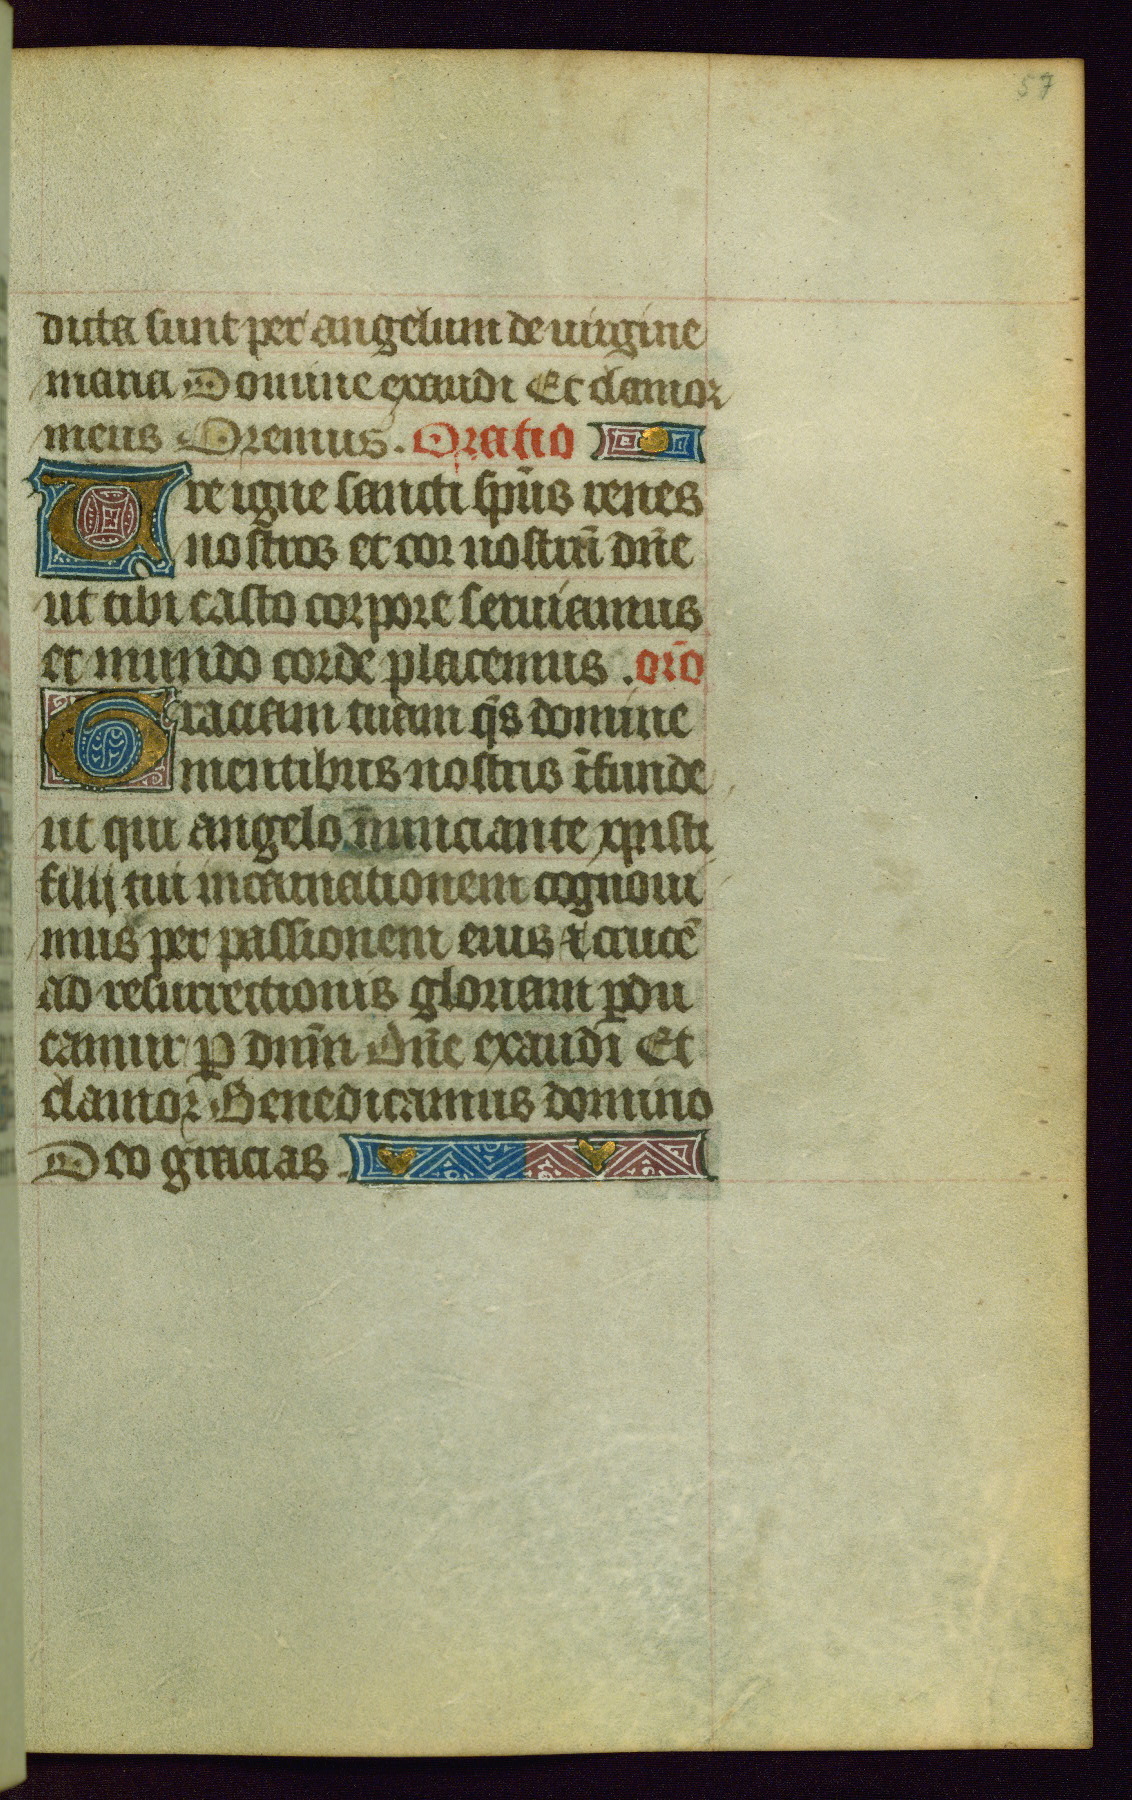 57
dicta sunt per angelum de uirgine
maria Domine exaudi Et clamor
meus Oremus. Oratio
Ure igne sancti sp̄us renes
nostros et cor nostrū dn̄e
ut tibi casto corpore seruiamus
et mundo corde placemus . orō
Graciam tuam q̄s domine
mentibus nostris īfunde
ut qui angelo nunciante xpristi
filij tui incarnationem cognoui
mus per passionem eius ⁊ crucē
ad resurrectionis gloriam ꝑdu
camur ꝑ dn̄m Dn̄e exaudi Et
clamor Benedicamus domino
Deo gracias .